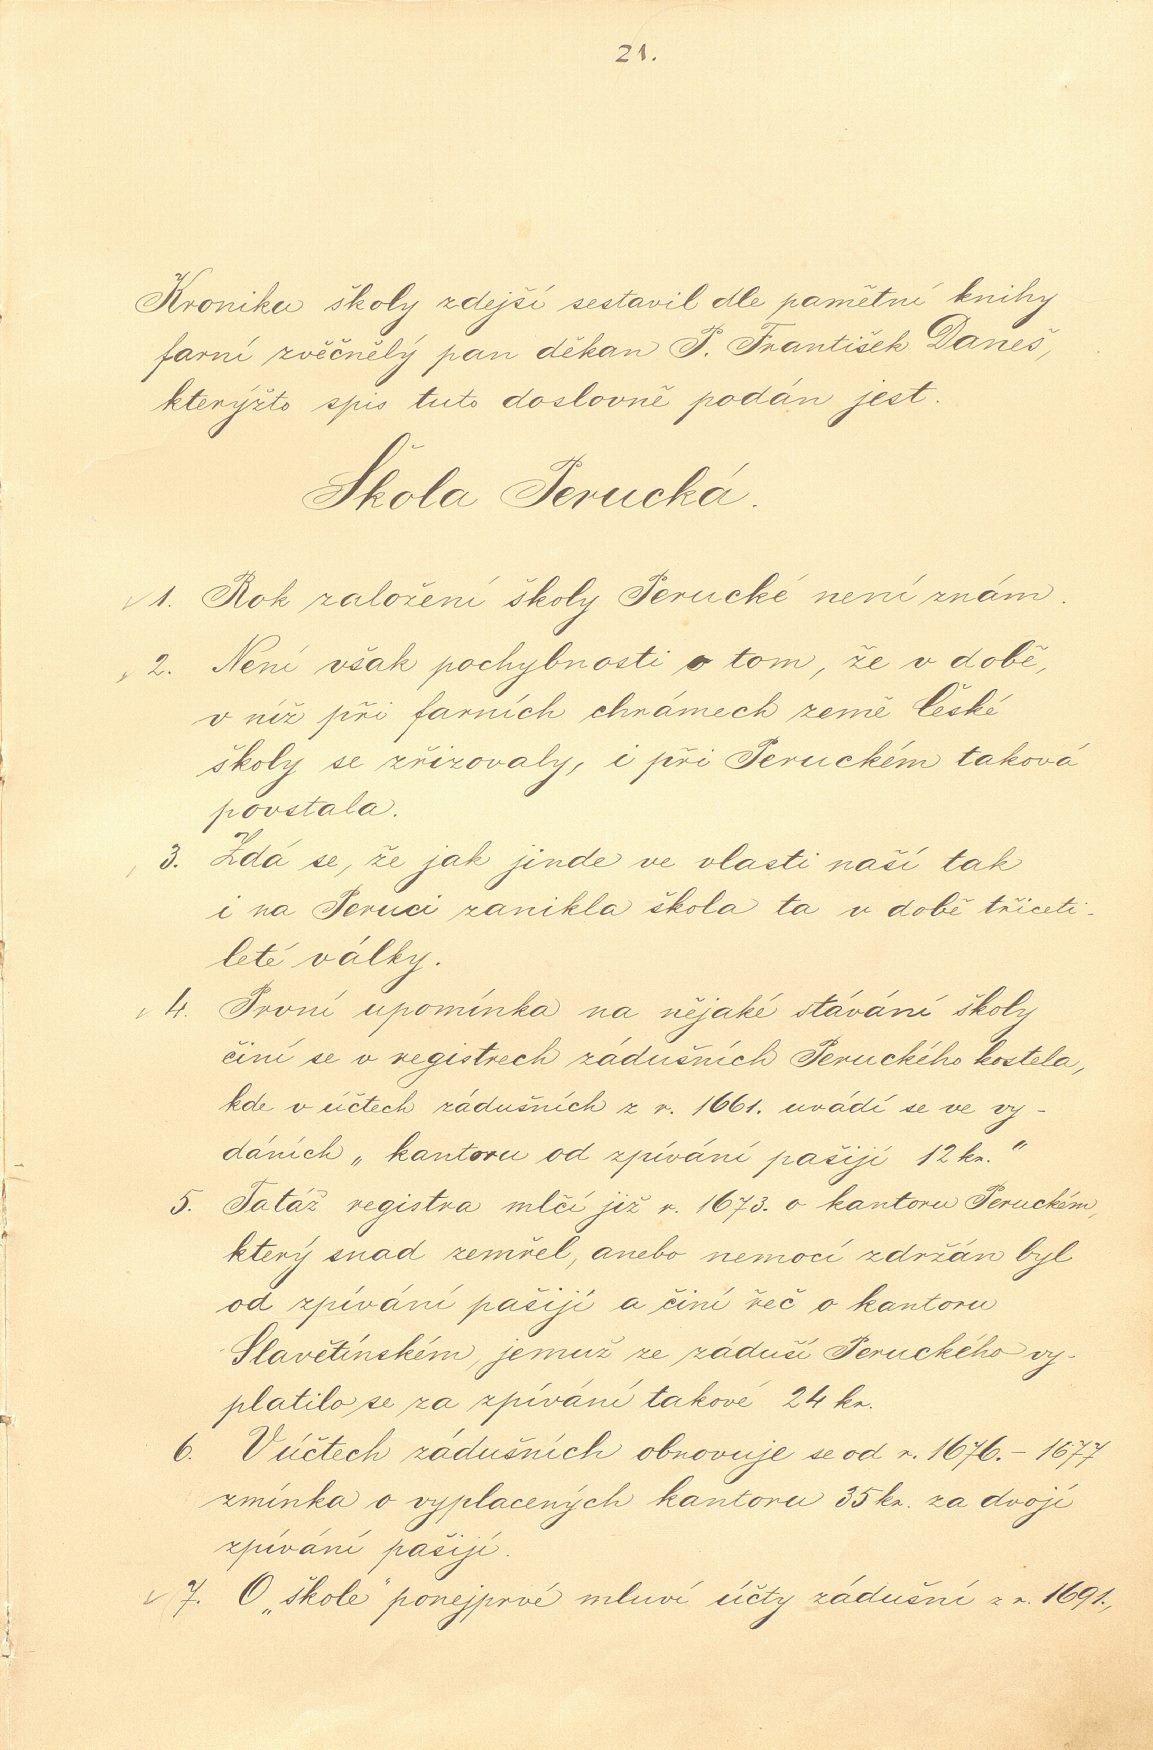 21.
Kroniku školy zdejší sestavil dle pamětní knihy
farní zvěčnělý pan děkan P. František Daneš,
kterýžto spis tuto doslovně podán jest.
Škola Perucká.
1. Rok založení školy Perucké není znám.
2. Není však pochybnosti o tom, že v době,
v níž při farních chrámech země České
školy se zřizovaly, i při Peruckém taková
povstala.
3. Zdá se, že jak jinde ve vlasti naší tak
i na Peruci zanikla škola ta v době třiceti-
leté války.
4. První upomínka na nějaké stávání školy
činí se v registrech zádušních Peruckého kostela,
kde v účtech zádušních z r. 1661. uvádí se ve vy-
dáních „kantoru od zpívání pašijí 12 kr."
5. Tatáž registra mlčí již r. 1673. o kantoru Peruckém,
který snad zemřel, anebo nemocí zdržán byl
od zpívání pašijí a činí řeč o kantoru
Slavětínském, jemuž ze záduší Peruckého vy-
platilo se za zpívání takové 24 kr.
6. V účtech zádušních obnovuje se od r. 1676.-1677
zmínka o vyplacených kantoru 35 kr. za dvojí
zpívání pašijí.
7. O „škole" ponejprvé mluví účty zádušní z r. 1691.,